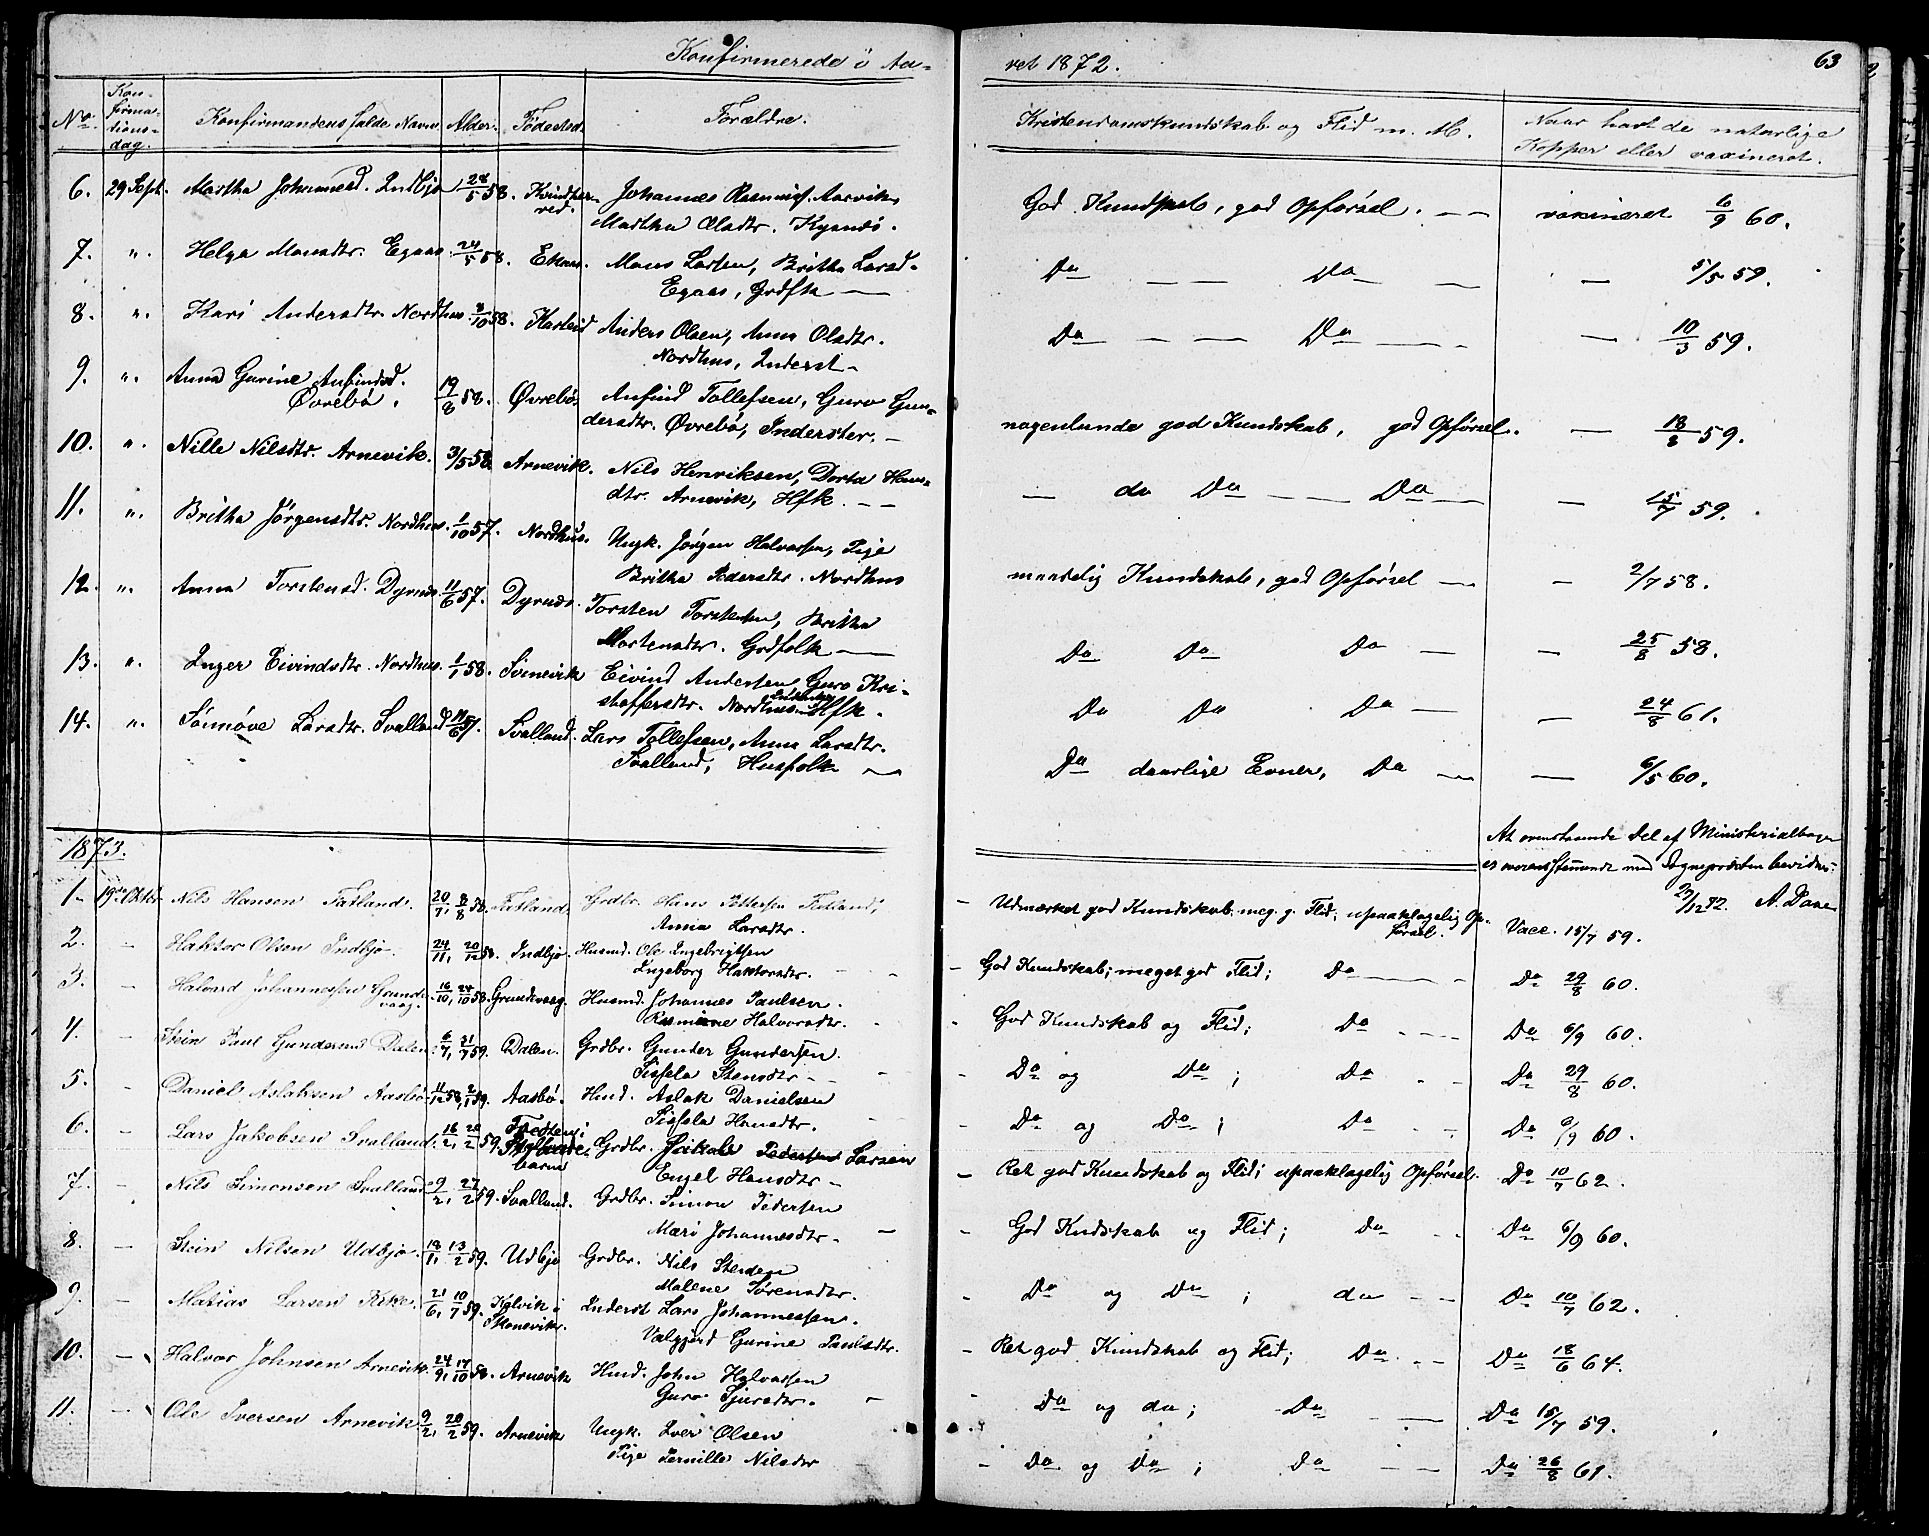 Konfirmerede i Aa-
ret 1872.
63
No.
Kon-
firma-
tions-
dag.
Konfirmandens fulde Navn
Alder.
Fødested.
Forældre.
Kristendomskundskab og Flid m. M.
Naar havt de naturlige
Kopper eller vaxineret.
6. 29 Sept. Martha Johannesd. Indbjo 28/5 58. Kvindher- Johannes Rasmuss. Aarvik God Kundskab, god Opførsel. — — vaxineret 6/9 60.
red. Martha Olsdtr. Kysnes.
7. ". Helga Monsdtr. Egaas. 24/5 58. Ekaas. Mons Larsen, Britha Larsd- Do — — Do — — — 5/5 59.
Egaas, Grdfk —
8. ". Kari Andersdtr. Nordhus. 8/10 58. Anders Olsen, Anna Olsdtr. Do — — Do — — — 10/3 59.
Nordhus, Inderst-
9. ". Anna Gurine Anfindsd. 19/8 58. Øvrebø. Anfind Tollefsen, Guro Gun-
Øvrebø. dersdtr. Øvrebø, Inderster. — nogenlunde god Kundskab, god Opførsel. — 18/8 59.
10. ". Nille Nilsdtr. Arnevik. 3/5 58. Arnevik. Nils Henriksen, Dorta Hans-
dtr. Arnevik, Hfk. — — — do Do — — Do — — 15/7 59.
11. ". Britha Jørgensdtr. Nordhus. 1/10 57. Nordhus. Ungk. Jørgen Halvorsen, Pige
Britha Pedersdtr. Nordhus maadelig Kundskab, god Opførsel — — 2/7 58.
12. ". Anna Torstensd. Dyrnes. 11/6 57. Dyrnes. Torsten Torstensen, Britha
Mortensdtr. Grdfolk — Do Do Do — — 25/8 58.
13. ". Inger Eivindsdtr. Nordhus. 1/1 58. Svinevik Eivind Andersen Guro Kri-
stoffersdtr. Nordhus Hfk. Do Do Do — — 24/8 61.
14. ". Sønnøve Larsdtr. Svalland 11/6 57. Svalland. Lars Tollefsen, Anna Larsdtr.
Svalland, Husfolk — Do daarlige Evner, Do — — 6/5 60.
1873.
At ovenstaaende Del af Ministerialbogen
er overensstemmende med Sognepræsten bevidnes:
21/12 72. A. Daae
1. 19de Oktbr. Nils Hansen Fatland. 20/7, 8/8 58. Fatland. Grdbr. Hans Pettersen Fatland, — Udmærket god Kundskab, meg. g. Flid; upaaklagelig Op- Vacc. 15/7 59.
Anna Larsdtr. førsel.
2. — Haktor Olsen Indbjo. 24/11, 20/12 58. Indbjo. Husmd. Ole Ingebrigtsen
Ingeborg Haktorsdtr. — God Kundskab; meget god Flid; Do — Do 29/8 60.
3. — Halvard Johannessen Grunde- 16/10, 24/10 58. Grundevaag. Husmd. Johannes Paulsen.
vaag. Rasmine Halvorsdtr. — God Kundskab og Flid; Do — Do 6/9 60.
4. — Stein Paul Gundersen Dalen. 6/7, 31/7 59. Dalen. Grdbr. Gunder Gundersen.
Sissela Stensdtr — — Do og Do; Do — Do 29/8 60.
5. — Daniel Aslaksen Aasbø 11/12 58, 2/1 59. Aasbø. Hmd. Aslak Danielsen
Sissela Hansdtr. — Do og Do; Do — Do 6/9 60.
6. — Lars Jakobsen Svalland. 16/2, 20/2 59. Grdbr. Jakob Larsen
Engel Hansdtr — — Ret god Kundskab og Flid; upaaklagelig Opførsel. Do 10/7 62.
7. — Nils Simonsen Svalland 9/2, 27/2 59. Svalland. Grdbr. Simon Pedersen
Mari Johannesdtr. — — God Kndskab og Flid; Do Do 6/9 60.
8. — Stein Nilsen Udbjo. 18/1, 13/2 59. Udbjo Grdbr. Nils Stensen
Malene Sørensdtr. — Do og Do; do — Do 10/7 62.
9. — Matias Larsen Eike. 21/6, 10/7 59. Kalvik i Inderst Lars Johannessen.
Skonevik. Valgjerd Gurine Paulsdtr. — Ret god Kundskab og Flid; Do — Do 18/6 64.
10. — Halvor Johnsen Arnevik. 24/9, 17/10 58. Arnevik Hmd. John Halvorsen
Guro Sjursdtr. — Do og do; Do — Do 15/7 59.
11. — Ole Iversen Arnevik 9/2, 20/2 59. Arnevik Ungk. Iver Olsen
Pige Pernille Nilsdtr — Do og Do; Do — — Do 26/8 61.